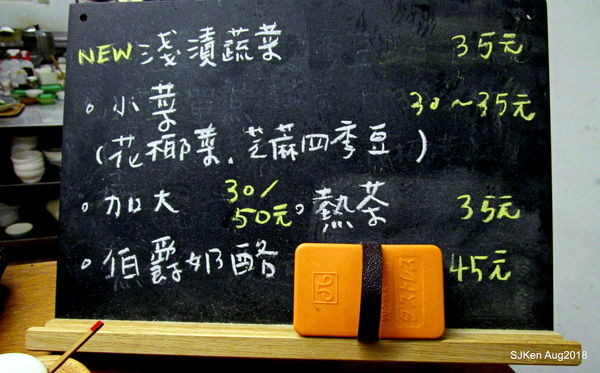 NEW 淺漬蔬菜 35元
。小菜 30～35元
(花椰菜.芝麻四季豆)
。加大 30/50元。熱茶 35元
。伯爵奶酪 45元
SJKen Aug2018